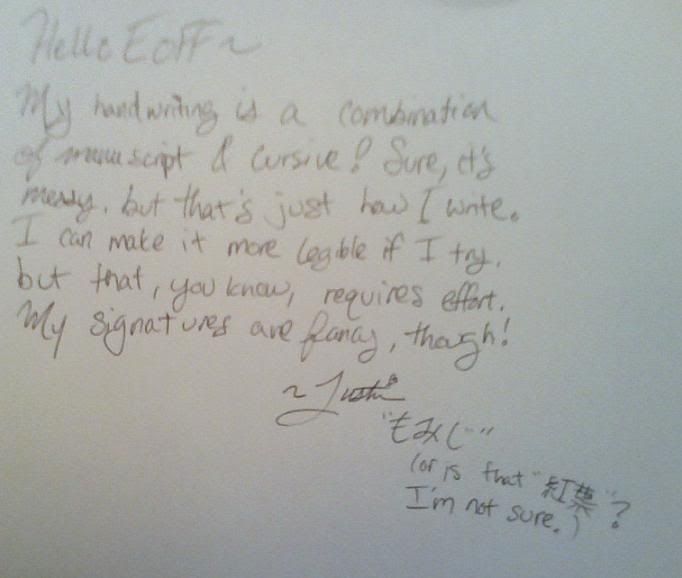 Hello EOFF~
My handwriting is a combination
of manuscript & cursive! Sure, it's
messy, but that's just how I write.
I can make it more legible if I try,
but that, you know, requires effort.
My signatures are fancy, though!
~Justin
"もみじ"
(or is that "紅葉"?
I'm not sure.)